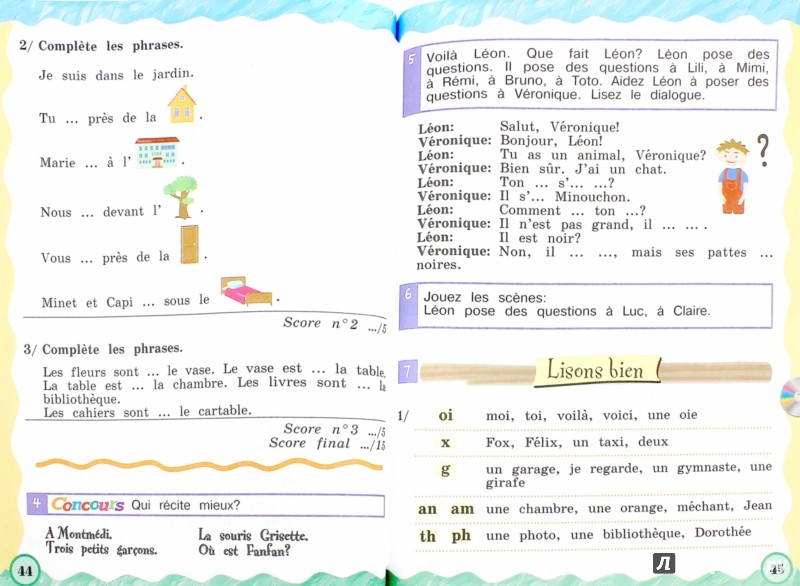 2/ Complète les phrases.
Je suis dans le jardin.
Tu ... près de la .
Marie ... à l' .
Nous ... devant l' .
Vous ... près de la .
Minet et Capi ... sous le .
Score n°2 .../5
3/ Complète les phrases.
Les fleurs sont ... le vase. Le vase est ... la table.
La table est ... la chambre. Les livres sont ... la
bibliothèque.
Les cahiers sont ... le cartable.
Score n°3 .../5
Score final .../15
4 Concours Qui récite mieux?
A Montmédi.
Trois petits garçons.
La souris Grisette.
Où est Fanfan?
44
5 Voilà Léon. Que fait Léon? Léon pose des
questions. Il pose des questions à Lili, à Mimi,
à Rémi, à Bruno, à Toto. Aidez Léon à poser des
questions à Véronique. Lisez le dialogue.
Léon: Salut, Véronique!
Véronique: Bonjour, Léon!
Léon: Tu as un animal, Véronique?
Véronique: Bien sûr. J'ai un chat.
Léon: Ton ... s'... ...?
Véronique: Il s'... Minouchon.
Léon: Comment ... ton ...?
Véronique: Il n'est pas grand, il ... ... .
Léon: Il est noir?
Véronique: Non, il ... ..., mais ses pattes ...
noires.
?
6 Jouez les scènes:
Léon pose des questions à Luc, à Claire.
7 Lisons bien
1/ oi moi, toi, voilà, voici, une oie
x Fox, Félix, un taxi, deux
g un garage, je regarde, un gymnaste, une
girafe
an am une chambre, une orange, méchant, Jean
th ph une photo, une bibliothèque, Dorothée
Л
45